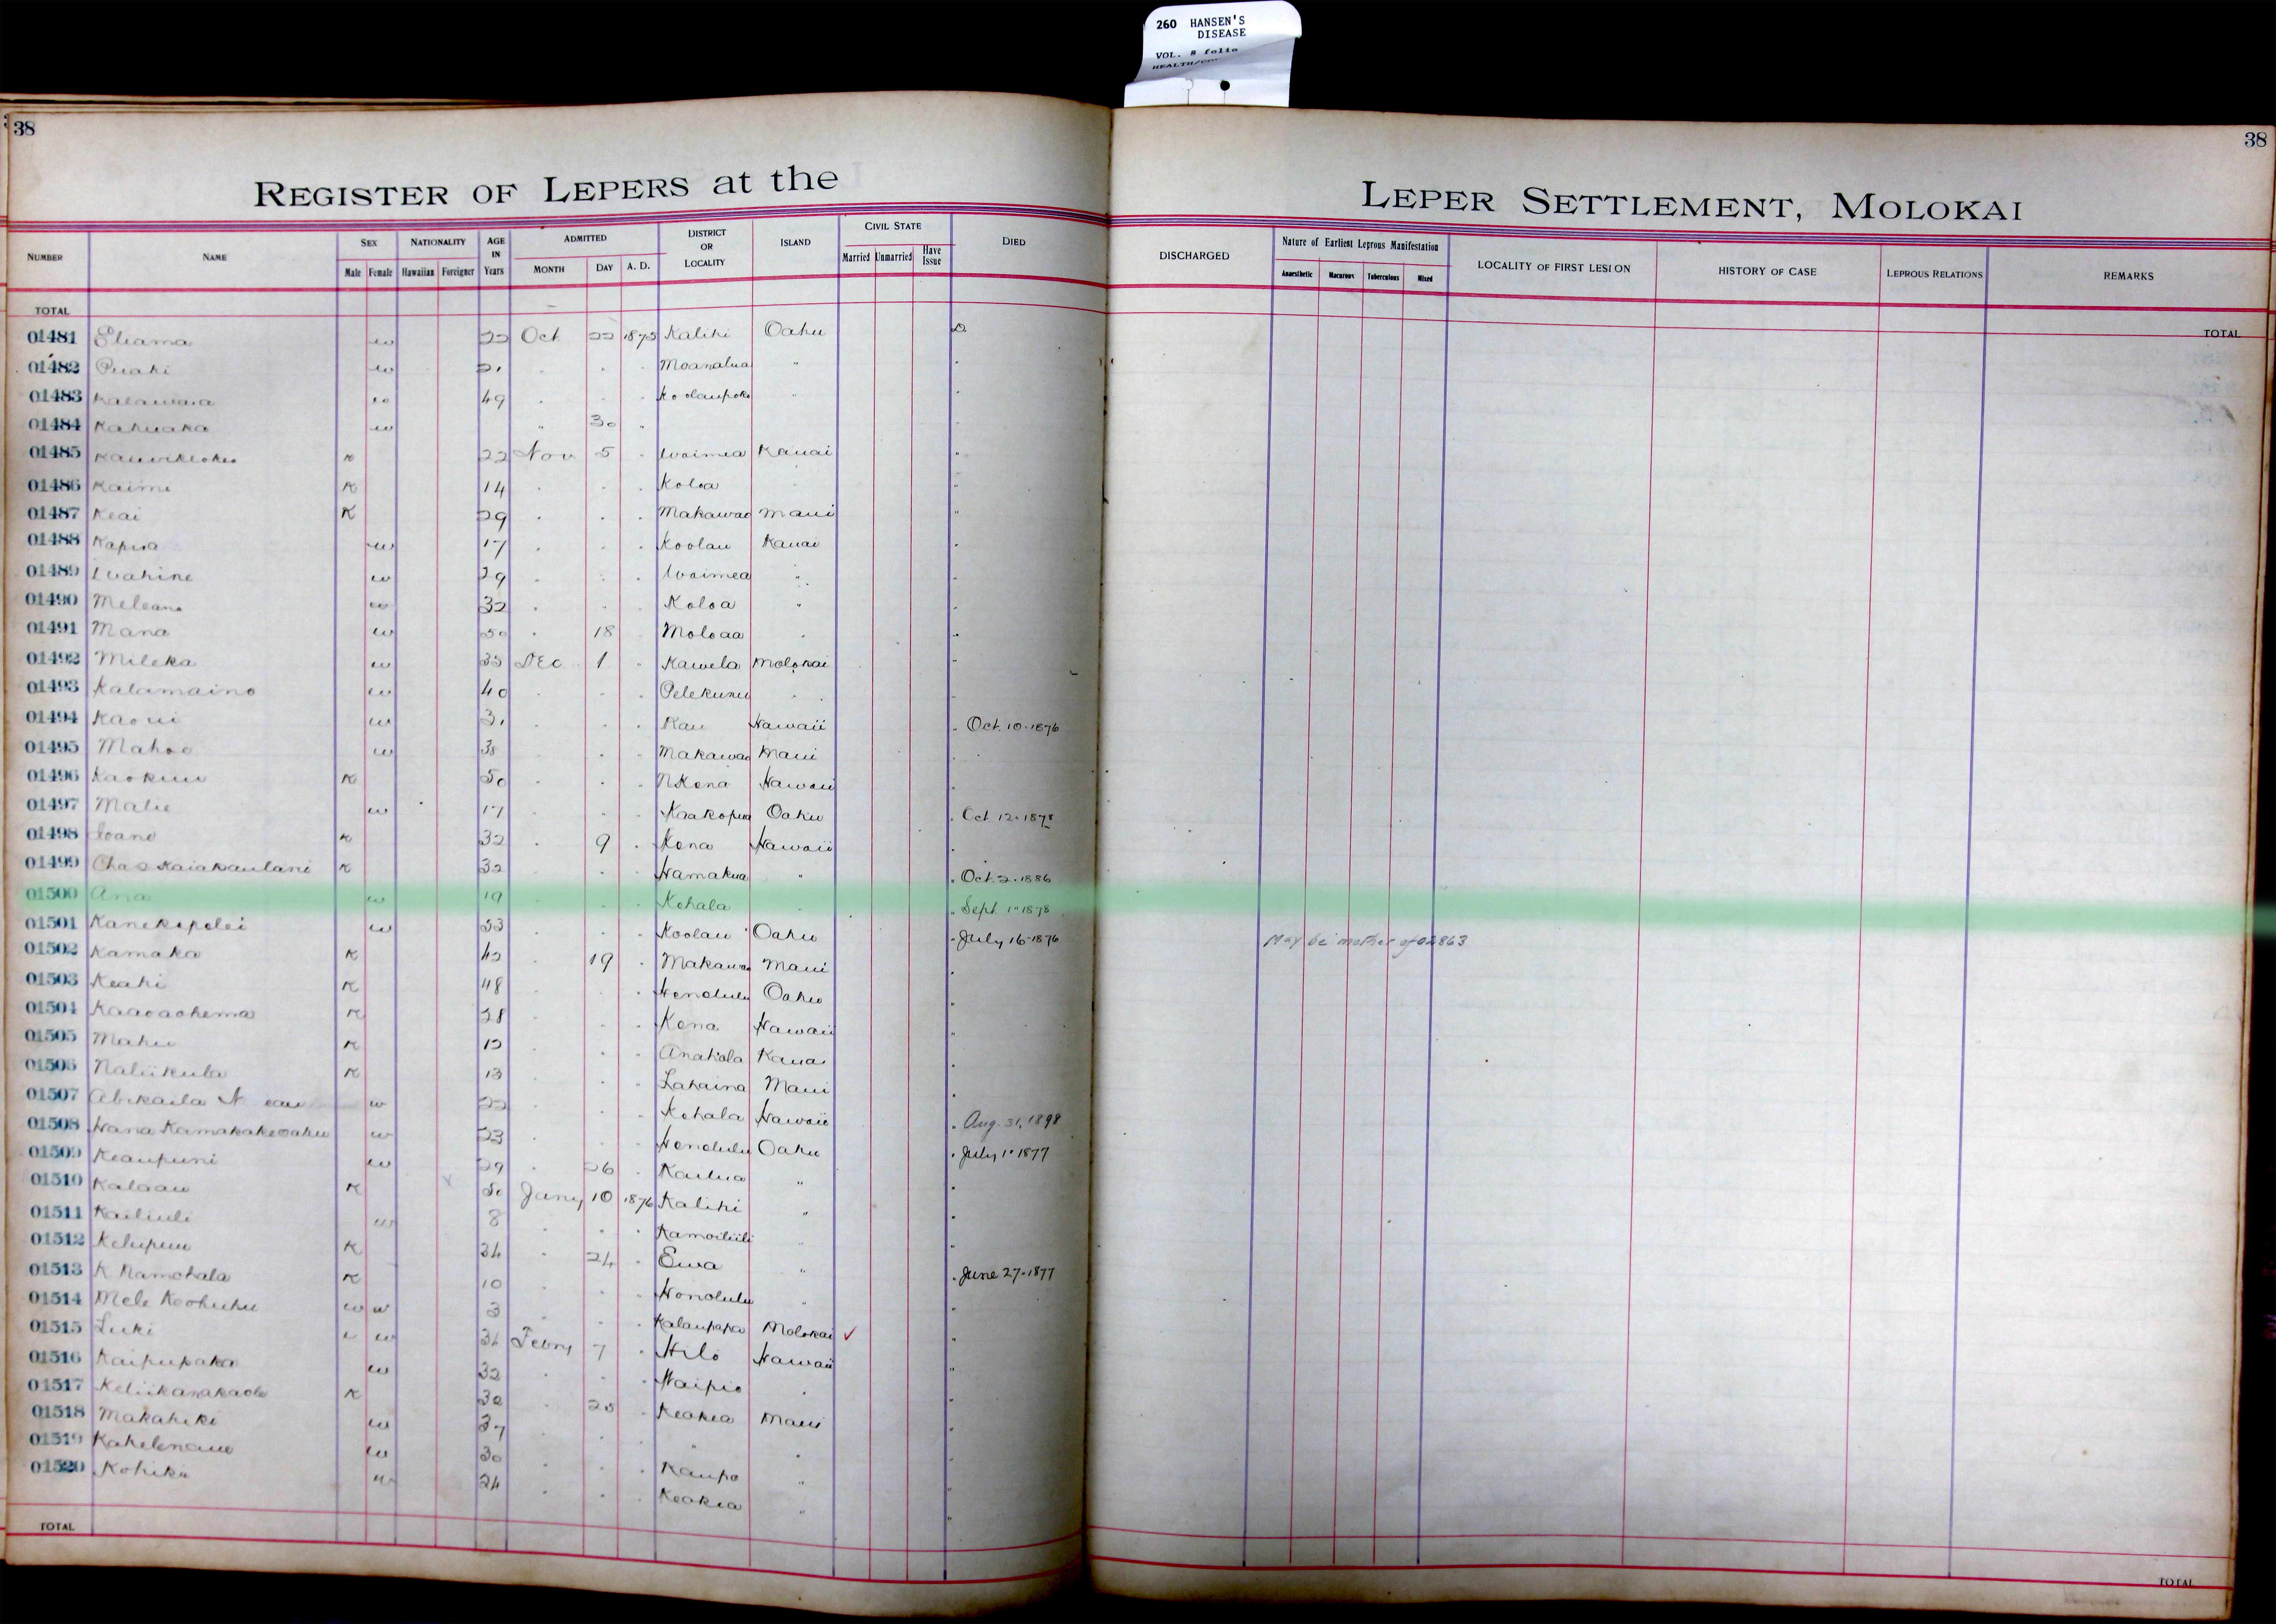 260 HANSEN'S
DISEASE
VOL. 8 folio
38
38
REGISTER OF LEPERS at the LEPER SETTLEMENT, MOLOKAI
NUMBER NAME SEX NATIONALITY AGE IN Years ADMITTED DISTRICT OR LOCALITY ISLAND CIVIL STATE DIED DISCHARGED Nature of Earliest Leprous Manifestation LOCALITY OF FIRST LESION HISTORY OF CASE LEPROUS RELATIONS REMARKS
Male Female Hawaiian Foreigner MONTH DAY A. D. Married Unmarried Have Issue Anaesthetic Macurous Tuberculous Mixed
TOTAL TOTAL
01481 Eliama w 22 Oct 22 1875 Kalihi Oahu D
01482 Puahi w 21 " " " Moanalua "
01483 Kalawaia w 49 " " " Koolaupoko "
01484 Kahuaka w " 30 "
01485 k 22 Nov 5 " Waimea Kauai "
01486 Kaimi K 14 " " " Koloa "
01487 Keai K 29 " " " Makawao Maui "
01488 w 17 " " " Koolau Kauai "
01489 Wahine w 29 " " " Waimea " "
01490 Meleana w 32 " " " Koloa " "
01491 Mana w 50 " 18 Moloaa " "
01492 Mileka w 35 Dec 1 " Kawela Molokai "
01493 Kalamaino w 40 " " " Pelekunu " "
01494 Kaoui w 31 " " " Kau Hawaii " Oct. 10-1876
01495 Mahoe w 38 " " Makawao Maui "
01496 Kaokuu K 50 " " " N Kona Hawaii "
01497 Malie w 17 " " " Kaakopua Oahu " Oct 12-1878
01498 Ioane k 32 " 9 " Kona Hawaii "
01499 Chas Kaiakaulani K 32 " " " Hamakua " " Oct. 2-1886
01500 Ana w 19 " " " Kohala " " Sept 1-1878
01501 Kanekapolei w 53 " " " Koolau Oahu " July 16-1876 May be mother of 02863
01502 Kamaka K 42 " 19 " Makawao Maui "
01503 Keahi K 48 " " " Honolulu Oahu "
01504 Kaaoaohema K 28 " " " Kona Hawaii "
01505 Mahu K 12 " " " Anahola Kauai "
01506 Naliikula K 13 " " " Lahaina Maui "
01507 w 22 " " " Kohala Hawaii " Aug. 31, 1898
01508 Hana Kamakakeoahu w 23 " " " Honolulu Oahu " July 1-1877
01509 Keaupuni w 29 " 26 " Kailua " "
01510 Kalaau K 50 Jany 10 1876 Kalihi " "
01511 Kailiuli w 8 " " " Kamoiliili " "
01512 Kelupuu K 34 " 24 " Ewa " " June 27-1877
01513 K Namohala K 10 " " " Honolulu " "
01514 Mele Keohuhu w w 3 " " " Kalaupapa Molokai ✓ "
01515 Luki w 34 Febry 7 " Hilo Hawaii "
01516 Kaipupaka w 32 " " " Waipio " "
01517 Keliikanakaole K 30 " 20 " Keokea Maui "
01518 Makahiki w 37 " " " " " "
01519 w 30 " " " Kaupo " "
01520 Kohiki w 24 " " " Keokea " "
TOTAL TOTAL